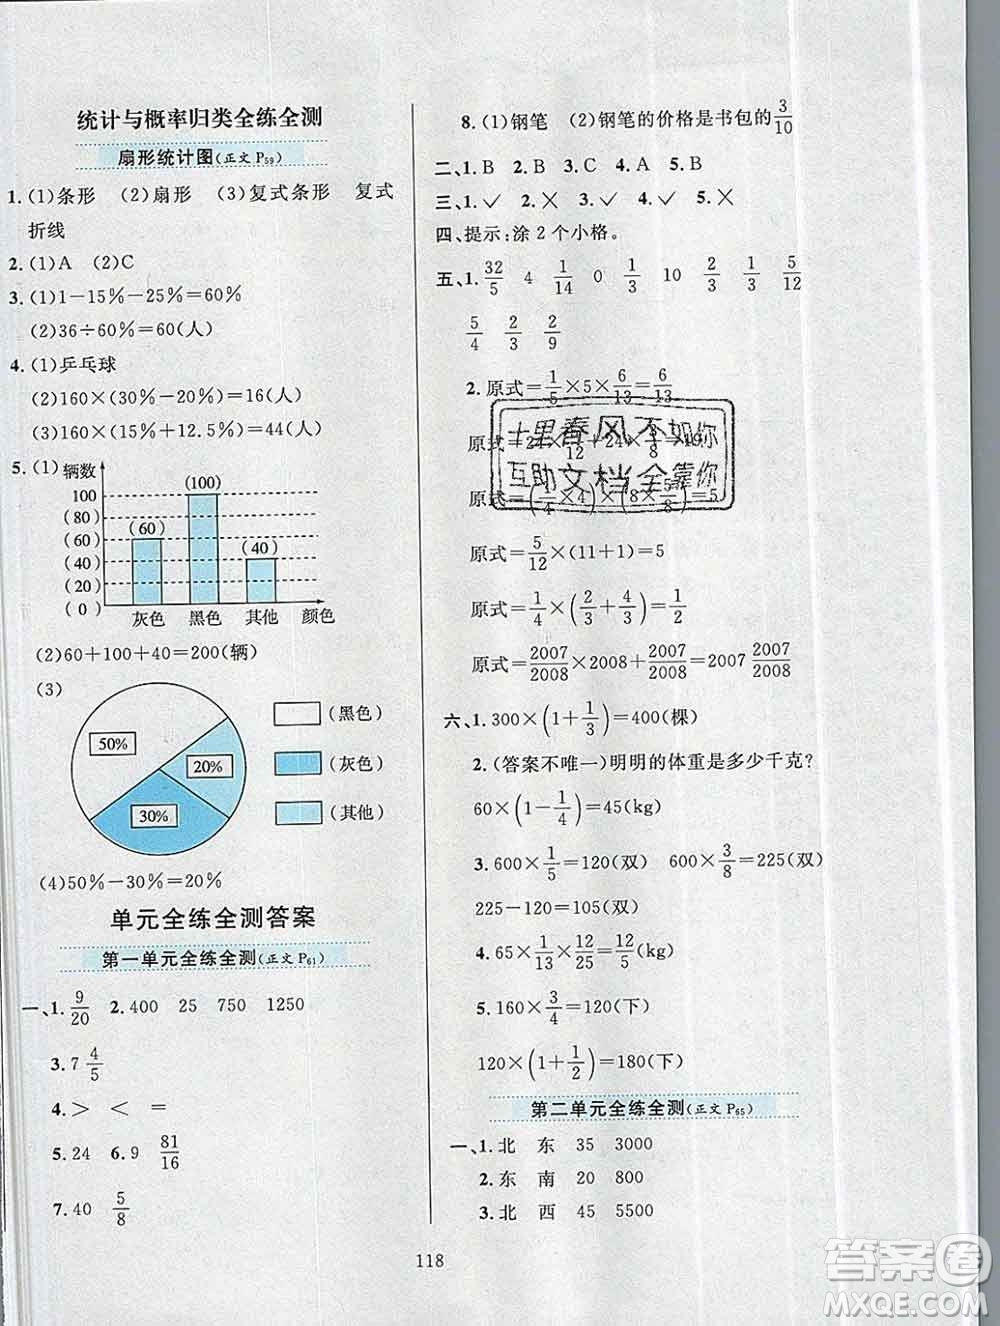 统计与概率归类全练全测
扇形统计图(正文 P59)
1. (1)条形 (2)扇形 (3)复式条形 复式
折线
2. (1)A (2)C
3. (1)1－15％－25％＝60％
(2)36÷60％＝60(人)
4. (1)乒乓球
(2)160×(30％－20％)＝16(人)
(3)160×(15％＋12.5％)＝44(人)
5. (1) 辆数
100
(80)
(60)
(40)
(20)
(0)
(60) (100) (40)
灰色 黑色 其他 颜色
(2)60＋100＋40＝200(辆)
(3)
50%
20%
30%
(黑色)
(灰色)
(其他)
(4)50％－30％＝20％
单元全练全测答案
第一单元全练全测(正文 P61)
一、1. 9/20 2. 400 25 750 1250
3. 7 4/5
4. ＞ ＜ ＝
5. 24 6. 9 81/16
7. 40 5/8
8. (1)钢笔 (2)钢笔的价格是书包的3/10
二、1. B 2. B 3. C 4. A 5. B
三、1. ✓ 2. ✕ 3. ✕ 4. ✓ 5. ✕
四、提示:涂 2 个小格。
五、1. 32/5 4 1/14 0 1/3 10 2/3 1/3 5/12
5/4 2/3 2/9
2. 原式＝1/5×5×6/13＝6/13
原式＝
原式＝(1/4×4)×(8×5/8)＝5
原式＝5/12×(11＋1)＝5
原式＝1/4×(2/3＋4/3)＝1/2
原式＝2007/2008×2008＋2007/2008＝2007 2007/2008
十里春风不如你
互助文档全靠你
六、1. 300×(1＋1/3)＝400(棵)
2. (答案不唯一)明明的体重是多少千克?
60×(1－1/4)＝45(kg)
3. 600×1/5＝120(双) 600×3/8＝225(双)
225－120＝105(双)
4. 65×1/13×12/25＝12/5(kg)
5. 160×3/4＝120(下)
120×(1＋1/2)＝180(下)
第二单元全练全测(正文 P65)
一、1. 北 东 35 3000
2. 东 南 20 800
3. 北 西 45 5500
118
答案圈
MXQE.COM